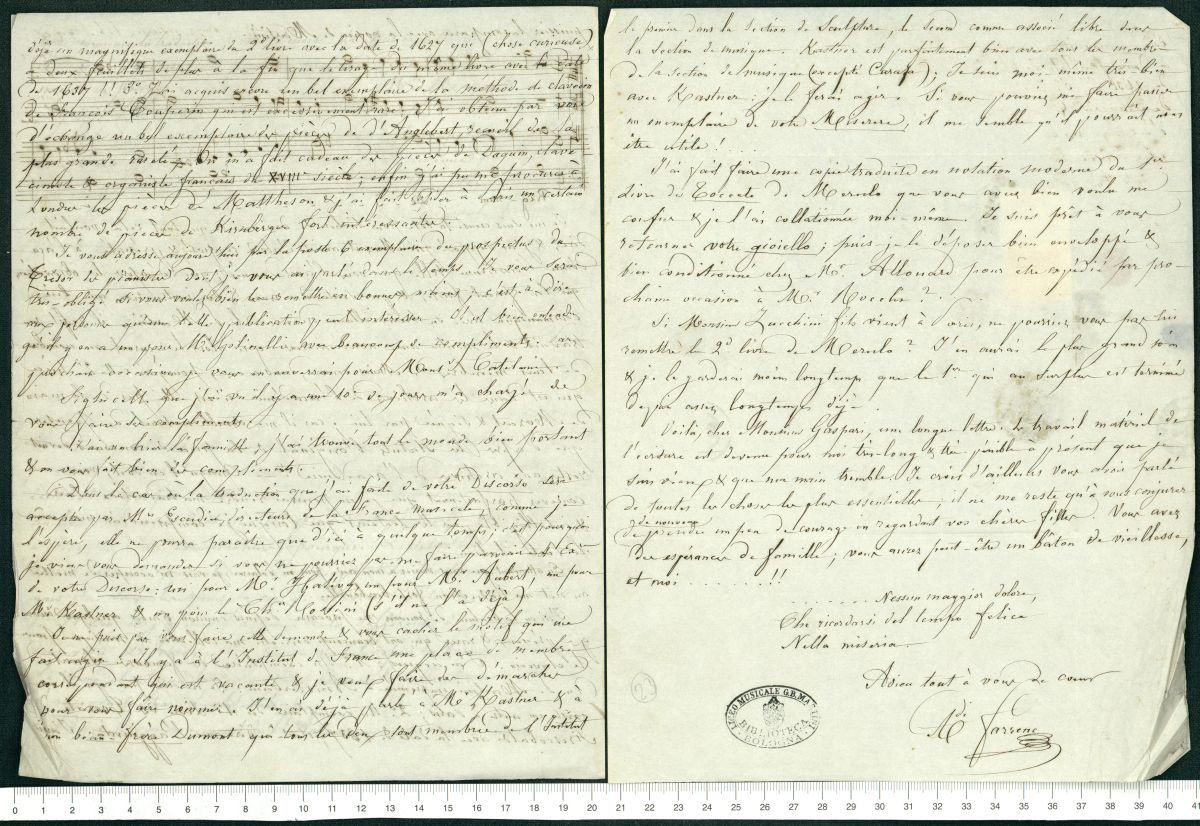 déjà un magnifique exemplaire du 2d livre avec la date de 1627 que, chose curieuse,
deux feuillets de plus à la fin que le tirage du même livre avec la date
de 1637 !! 3o J'ai acquis encore un bel exemplaire de la methode de clavecin
de François Couperin qui est excessivement rare; j'ai obtenu par voie
d'échange un bel exemplaire des pièces de d'Anglebert, recueil de la
plus grande rareté. On m'a fait cadeau des pièces de Dagum, clave-
ciniste & organiste français du XVIIIe siècle; enfin j'ai pu me procurer à
Londres les pièces de Mattheson & j'ai fait copier à Paris un certain
nombre de pièces de Kirnberger fort intéressantes.
Je vous adresse aujourd'hui par la poste 6 exemplaires du prospectus du
Trésor des pianistes dont je vous ai parlé dans le temps. Je vous serai
très obligé si vous voulez bien les remettre en bonnes mains, c'est à dire
aux personnes qu'une telle publication peut intéresser. Il est bien entendu
qu'il y en a un pour Mr. avec beaucoup de compliments. Par
prochaine occasion je vous en enverrai pour Monsr. Catelani.
Sighicelli que j'ai vu il y a une 10e de jours m'a chargé de
vous faire ses compliments.
& on vous fait bien des compliments.
Dans le cas où la traduction que j'ai faite de votre Discorso serait
acceptée par Mrs Escudier, directeurs de la France musicale, comme je
l'espère, elle ne pourra paraitre que d'ici à quelque temps; c'est pourquoi
je viens vous demander si vous ne pourriez pas me faire parvenir 4 Ex.
de votre Discorso: un pour Mr. Halevy, un pour Mr. Auber, un pour
Mr Kastner & un pour le Chr Rossini (s'il ne l'a déjà)
Je ne puis pas vous faire cette demande & vous cacher le motif qui me
fait agir. Il y a à l'Institut de France une place de membre
correspondant qui est vacante & je veux faire des démarches
pour vous faire nommer. J'en ai déjà parlé à Mr Kastner & à
son beau frère Dumont qui tous les deux sont membres de l'Institut
le premier dans la section de Sculpture, le second comme associé libre dans
la section de musique. Kastner est parfaitement bien avec tous les membres
de la section de musique (excepté Carafa); Je suis moi même très-bien
avec Kastner: je le ferai agir. Si vous pouviez me faire passer
un exemplaire de votre Miserere, il me semble qu'il pourrait nous
être utile! . . . .
J'ai fait faire une copie traduite en notation moderne du 1er
livre des Toccate de Merulo que vous aviez bien voulu me
confier & je l'ai collationnée moi-même. Je suis prêt à vous
retourner votre gioiello; puis-je le déposer bien enveloppé &
bien conditionné chez Mr. Allouard pour être expédié par pro-
chaine occasion à Mr. Rocchi?
Si Monsieur Zucchini fils vient à Paris, ne pourriez vous pas lui
remettre le 2d livre de Merulo? J'en aurai le plus grand soin
& je le garderai moins longtemps que le 1er. qui au surplus est terminé
depuis assez longtemps déjà.
Voilà, cher Monsieur Gaspari, une longue lettre: le travail matériel de
l'écriture est devenu pour moi très-long & très pénible à présent que je
suis vieux & que ma main tremble. Je crois d'ailleurs vous avoir parlé
de toutes les choses les plus essentielles; il ne me reste qu'à vous conjurer
de nouveau
de prendre un peu de courage en regardant vos chères filles. Vous avez
des espérances de famille; vous aurez peut-être un bâton de vieillesse,
et moi . . . . . . . . . !!
. . . . . Nessun maggior dolore,
Che ricordarsi del tempo felice
Nella miseria.
Adieu tout à vous de coeur
Farrenc
23
LICEO MUSICALE G.B. MARTINI
BIBLIOTECA
BOLOGNA
0 1 2 3 4 5 6 7 8 9 10 11 12 13 14 15 16 17 18 19 20 21 22 23 24 25 26 27 28 29 30 31 32 33 34 35 36 37 38 39 40 41